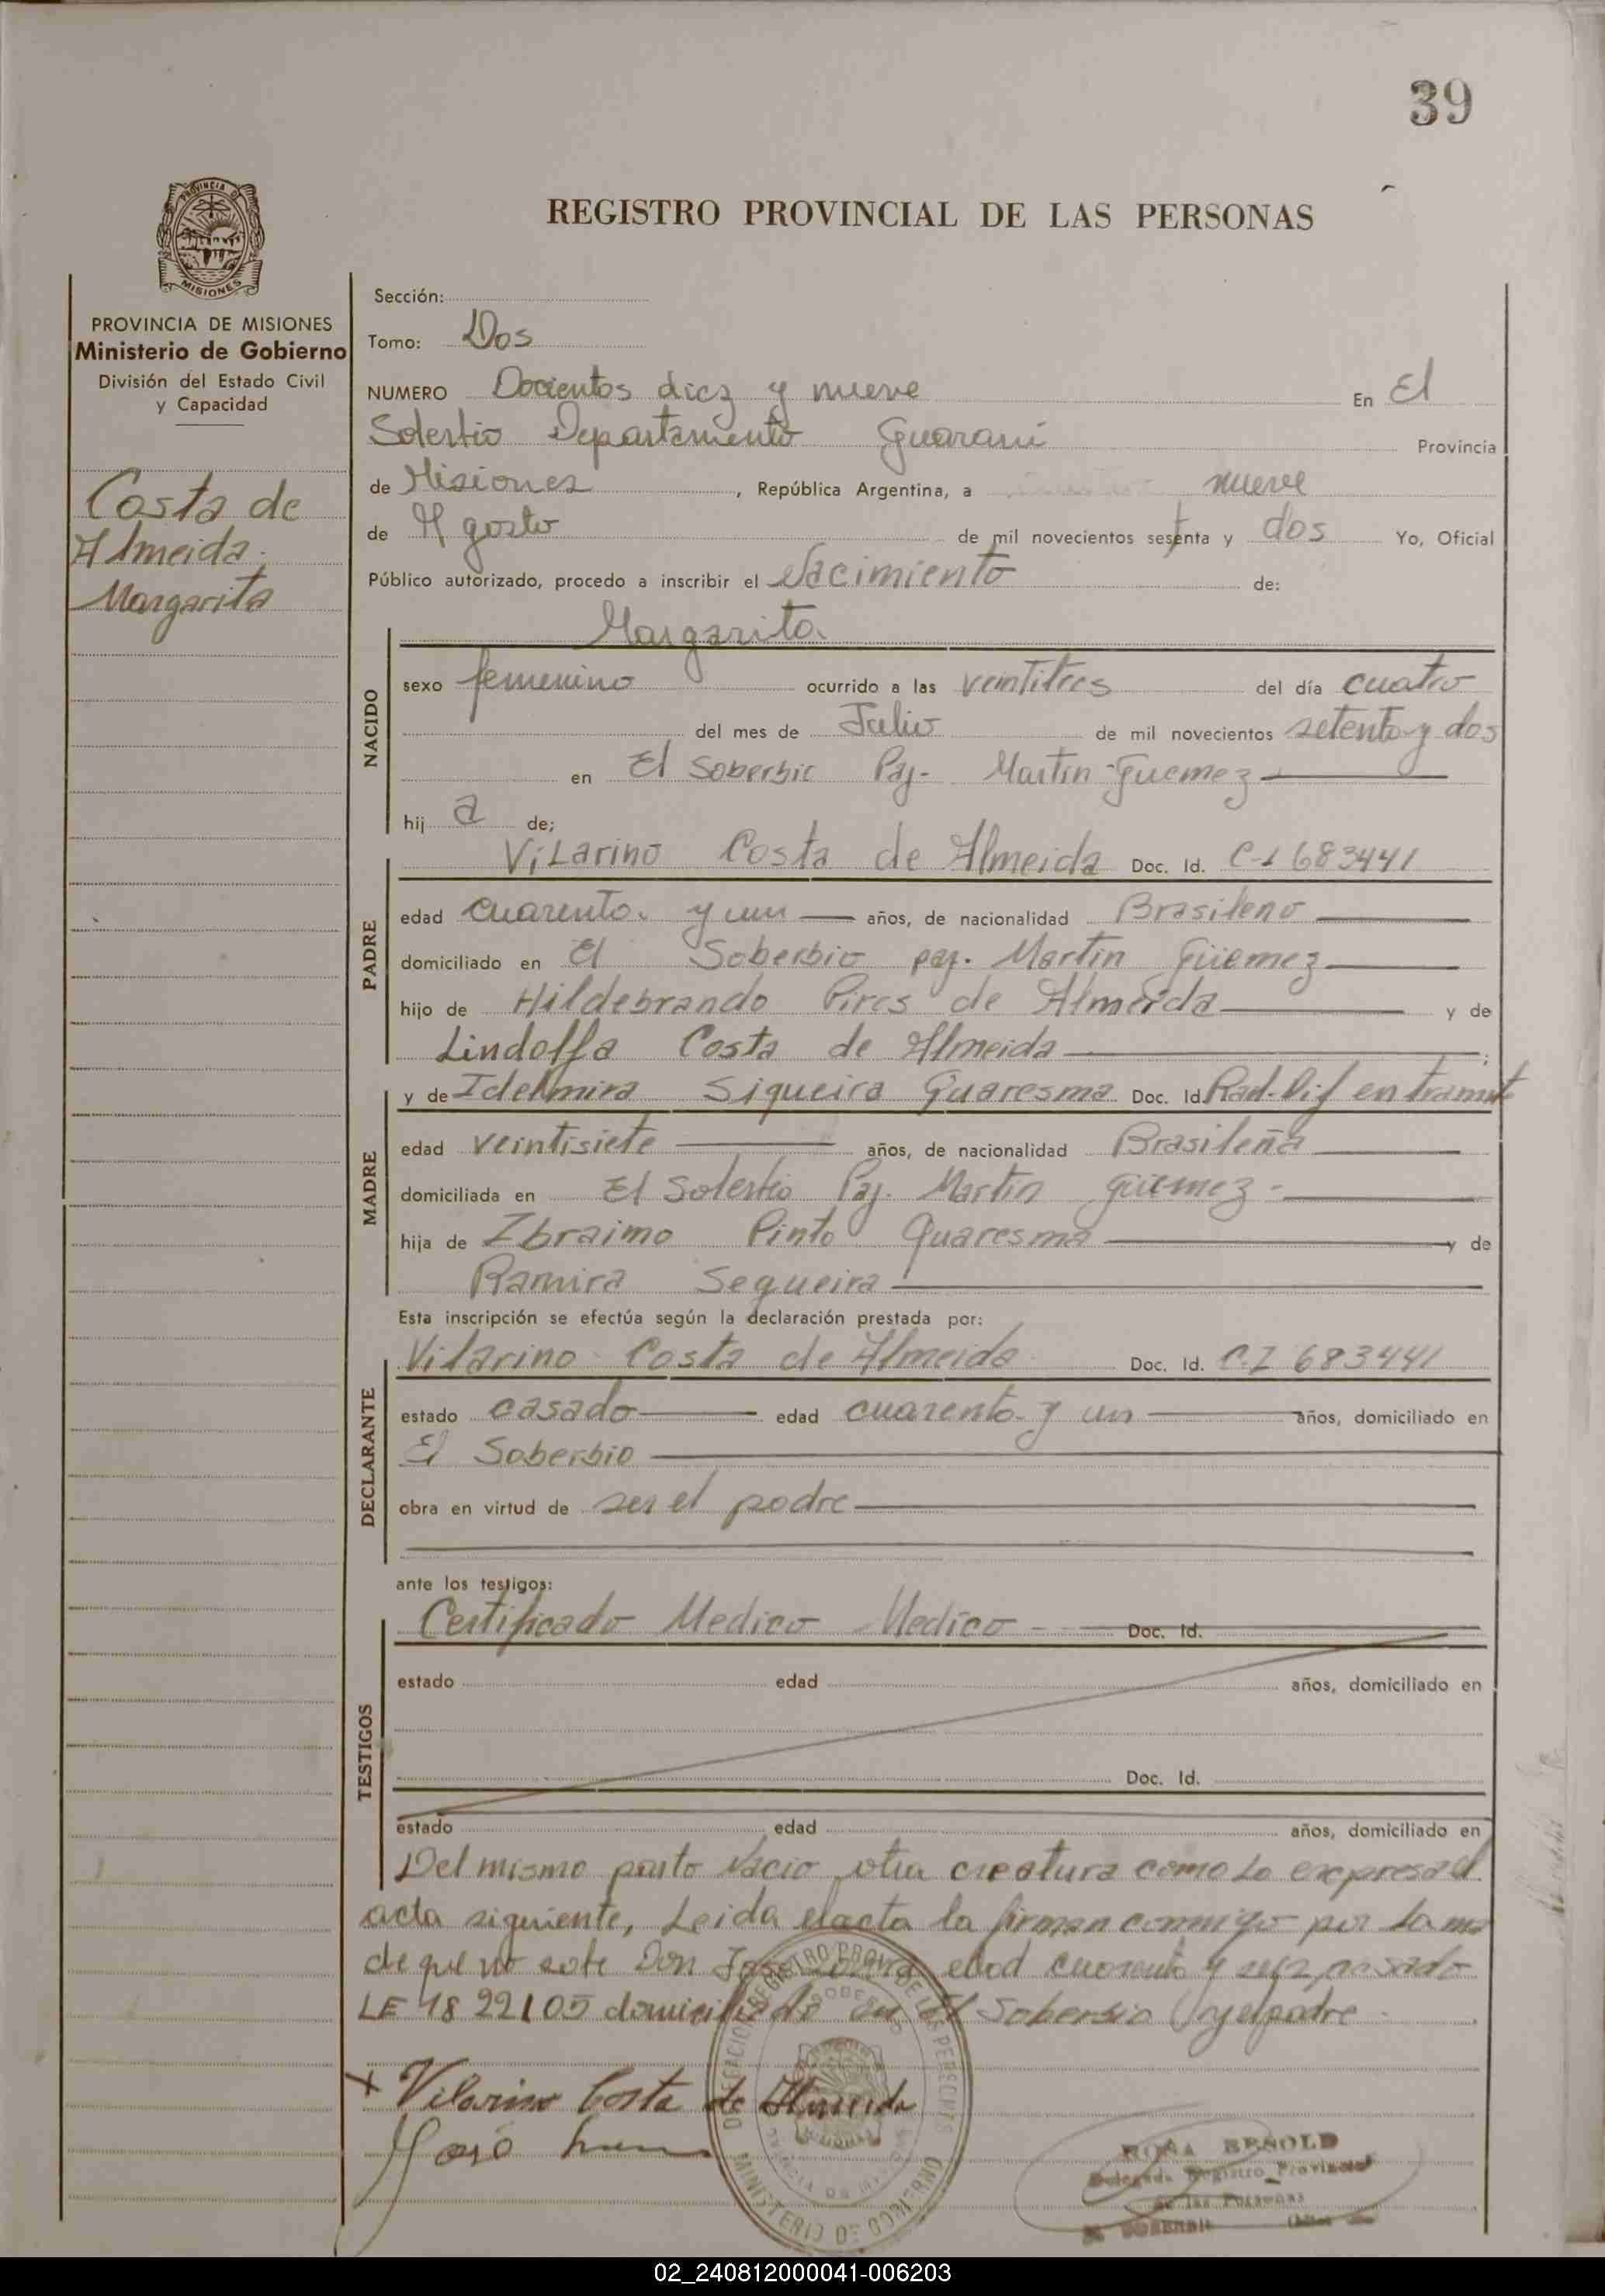 39
REGISTRO PROVINCIAL DE LAS PERSONAS
PROVINCIA DE MISIONES
Ministerio de Gobierno
División del Estado Civil
y Capacidad
Costa de
Almeida
Margarita
Sección:
Tomo: Dos
NUMERO Docientos diez y nueve En El
Soberbio Departamento Guaraní Provincia
de Misiones, República Argentina, a nueve
de Agosto de mil novecientos sesenta y dos Yo, Oficial
Público autorizado, procedo a inscribir el Nacimiento de:
NACIDO
Margarita
sexo femenino ocurrido a las veintitres del día cuatro
del mes de Julio de mil novecientos setenta y dos
en El Soberbio Paj- Martin Guemez
hij a de;
PADRE
Vilarino Costa de Almeida Doc. Id. C-I 683441
edad cuarenta y un años, de nacionalidad Brasileno
domiciliado en El Soberbio paj. Martin Güemez
hijo de Hildebrando Pires de Almeida y de
Lindolfa Costa de Almeida;
MADRE
y de Idelmira Siqueira Quaresma Doc. Id. Rad. Dif en tramite
edad veintisiete años, de nacionalidad Brasileña
domiciliada en El Soberbio Paj. Martin Güemez-
hija de Ibraimo Pinto Quaresma y de
Ramira Sequeira
Esta inscripción se efectúa según la declaración prestada por:
DECLARANTE
Vilarino Costa de Almeida Doc. Id. C.I 683441
estado casado edad cuarenta y un años, domiciliado en
El Soberbio
obra en virtud de ser el padre
ante los testigos:
TESTIGOS
Certificado Medico Medico Doc. Id.
estado edad años, domiciliado en
Doc. Id.
estado edad años, domiciliado en
Del mismo parto Nacio otra creatura como lo expresa el
acta siguiente, Leida el acta la firman conmigo por la ma
de que no sabe Don José edad cuarenta y seis casado
LE 1822105 domiciliado en El Soberbio y el padre
x Vilarino Costa de Almeida
José
DELEGACION REGISTRO PROV. DE LAS PERSONAS
MINISTERIO DE GOBIERNO
ROSA BENOLD
Delegada Registro Provincial
de las Personas
EL SOBERBIO
02_240812000041-006203